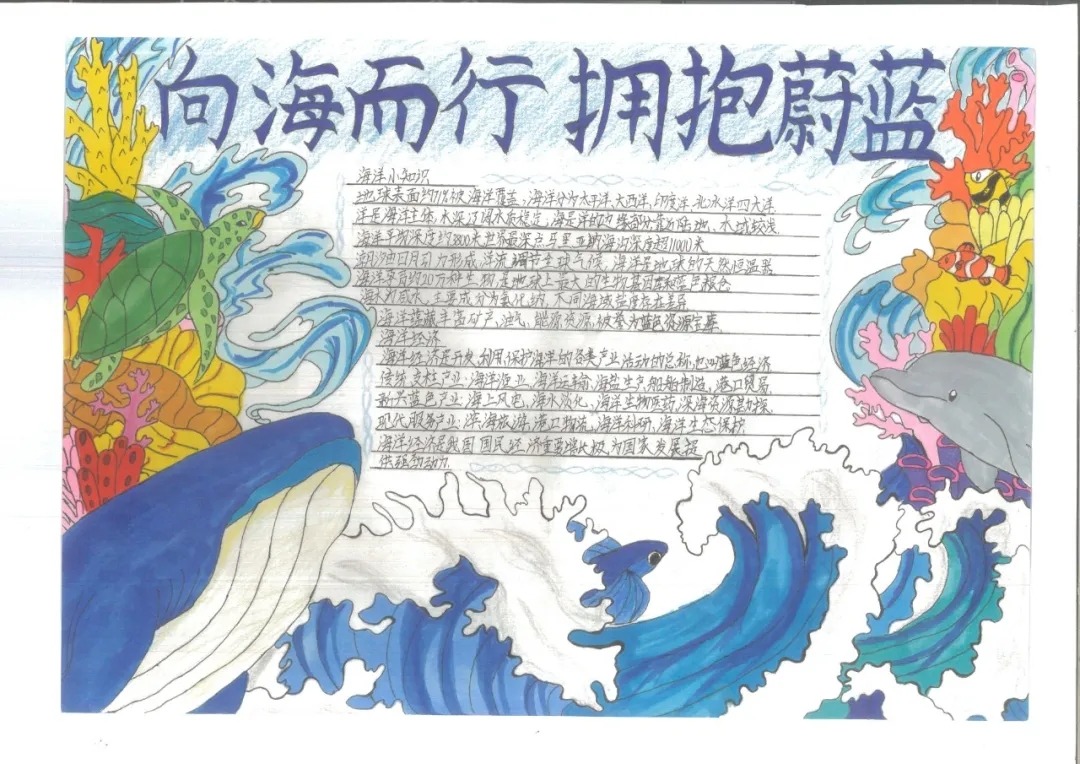 向海而行 拥抱蔚蓝
海洋小知识
地球表面约71%被海洋覆盖,海洋分为太平洋、大西洋、印度洋、北冰洋四大洋
洋是海洋主体,水深辽阔水质稳定,海是洋的边缘部分靠近陆地、水域较浅
海洋平均深度约3800米世界最深点马里亚纳海沟深度超11000米
潮汐由日月引力形成,洋流调节全球气候,海洋是地球的天然恒温器
海洋孕育约20万种生物,是地球上最大的生物基因库和蓝色粮仓
海水为咸水,主要成分为氯化钠,不同海域盐度存在差异
海洋蕴藏丰富矿产、油气、能源资源,被誉为蓝色资源宝库
海洋经济
海洋经济是开发、利用、保护海洋的各类产业活动的总称,也叫蓝色经济
传统支柱产业:海洋渔业、海洋运输、海盐生产、船舶制造、港口贸易
新兴蓝色产业:海上风电、海水淡化、海洋生物医药、深海资源勘探
现代服务产业:滨海旅游、港口物流、海洋科研、海洋生态保护
海洋经济是我国国民经济重要增长极,为国家发展提
供强劲动力